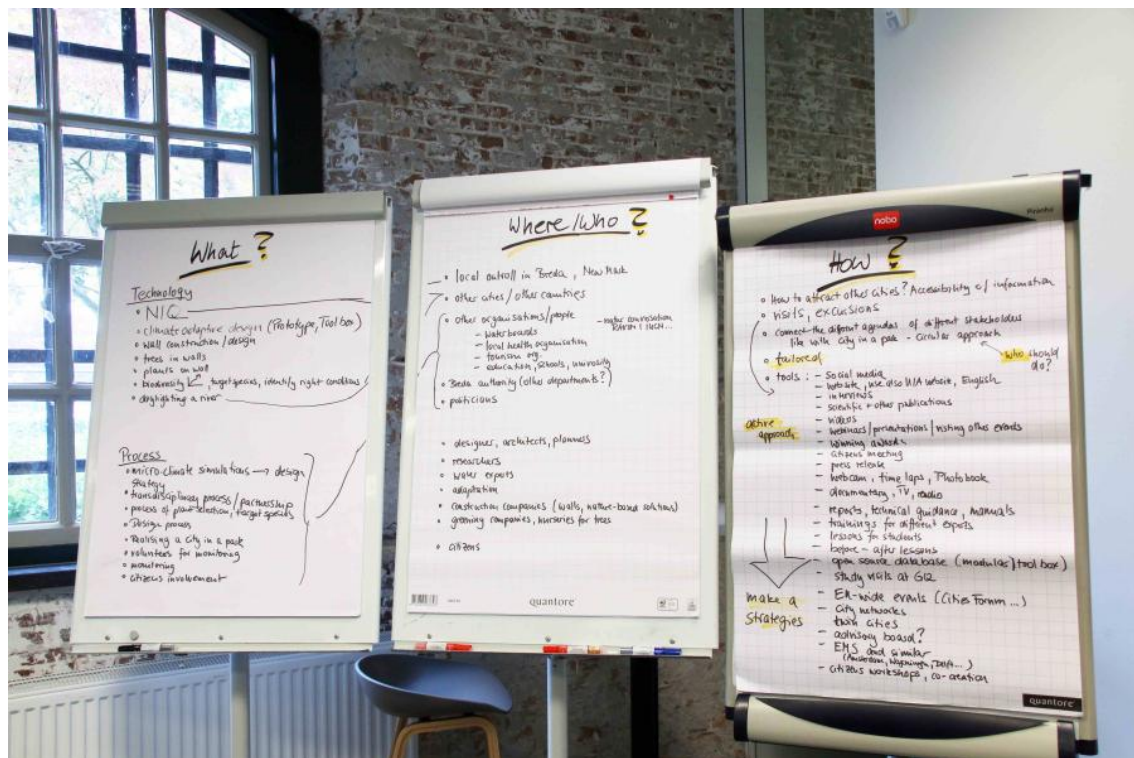 What ?
Technology
• NIQ
• climate adaptive design (Prototype, Tool box)
• wall construction / design
• trees in walls
• plants on wall
• biodiversity , target species, identify right conditions
• daylighting a river
Process
• micro-climate simulations → design
strategy
• transdisciplinary process / partnership
• process of plant selection, target species
• Design process
• Realising a city in a park
• volunteers for monitoring
• monitoring
• citizens involvement
Where / Who ?
• local outroll in Breda,
• other cities / other countries
• other organisations / people
- waterboards
- local health organisation
- tourism org.
- education, schools, university
• Breda authority (other departments?)
• politicians
• designer, architects, planners
• researchers
• water experts
• adaptation
• construction companies (walls, nature-based solutions)
• greening companies, nurseries for trees
• citizens
quantore
nobo
Piranha
How ?
• How to attract other cities? Accessibility of information
• visits, excursions
• connect the different agendas of different stakeholders
like with city in a park - circular approach
who should
do?
• tailored
• tools : - social media
- website, use also UIA website, English
- interviews
- scientific + other publications
- videos
active
approach
- webinars / presentations / visiting other events
- winning awards
- citizens meeting
- press release
- webcam, time laps, Photobook
- documentary, TV, radio
- reports, technical guidance, manuals
- trainings for different experts
- lessons for students
- before - after lessons
- open source database (modulas) tool box)
- study visits at
make a
strategies
- EU-wide events (Cities Forum ...)
- city networks
- twin cities
- advisory board?
- EMS and similar
(Amsterdam, Wageningen, Delft...)
- citizens workshops, co-creation
quantore